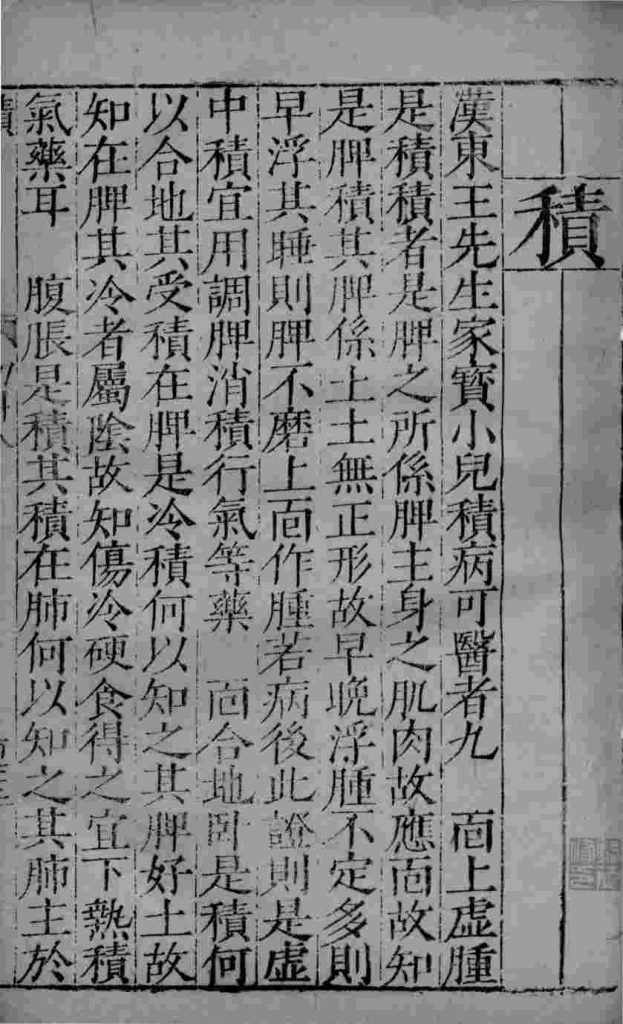 積
漢東王先生家寳小兒積病可醫者九　靣上虛腫
是積積者是脾之所係脾主身之肌肉故應靣故知
是脾積其脾係土土無正形故早晚浮腫不定多則
早浮其睡則脾不磨上靣作腫若病後此證則是虛
中積宜用調脾消積行氣等藥　靣合地卧是積何
以合地其受積在脾是冷積何以知之其脾好土故
知在脾其冷者屬陰故知傷冷硬食得之宜下熱積
氣藥耳　腹脹是積其積在肺何以知之其肺主於